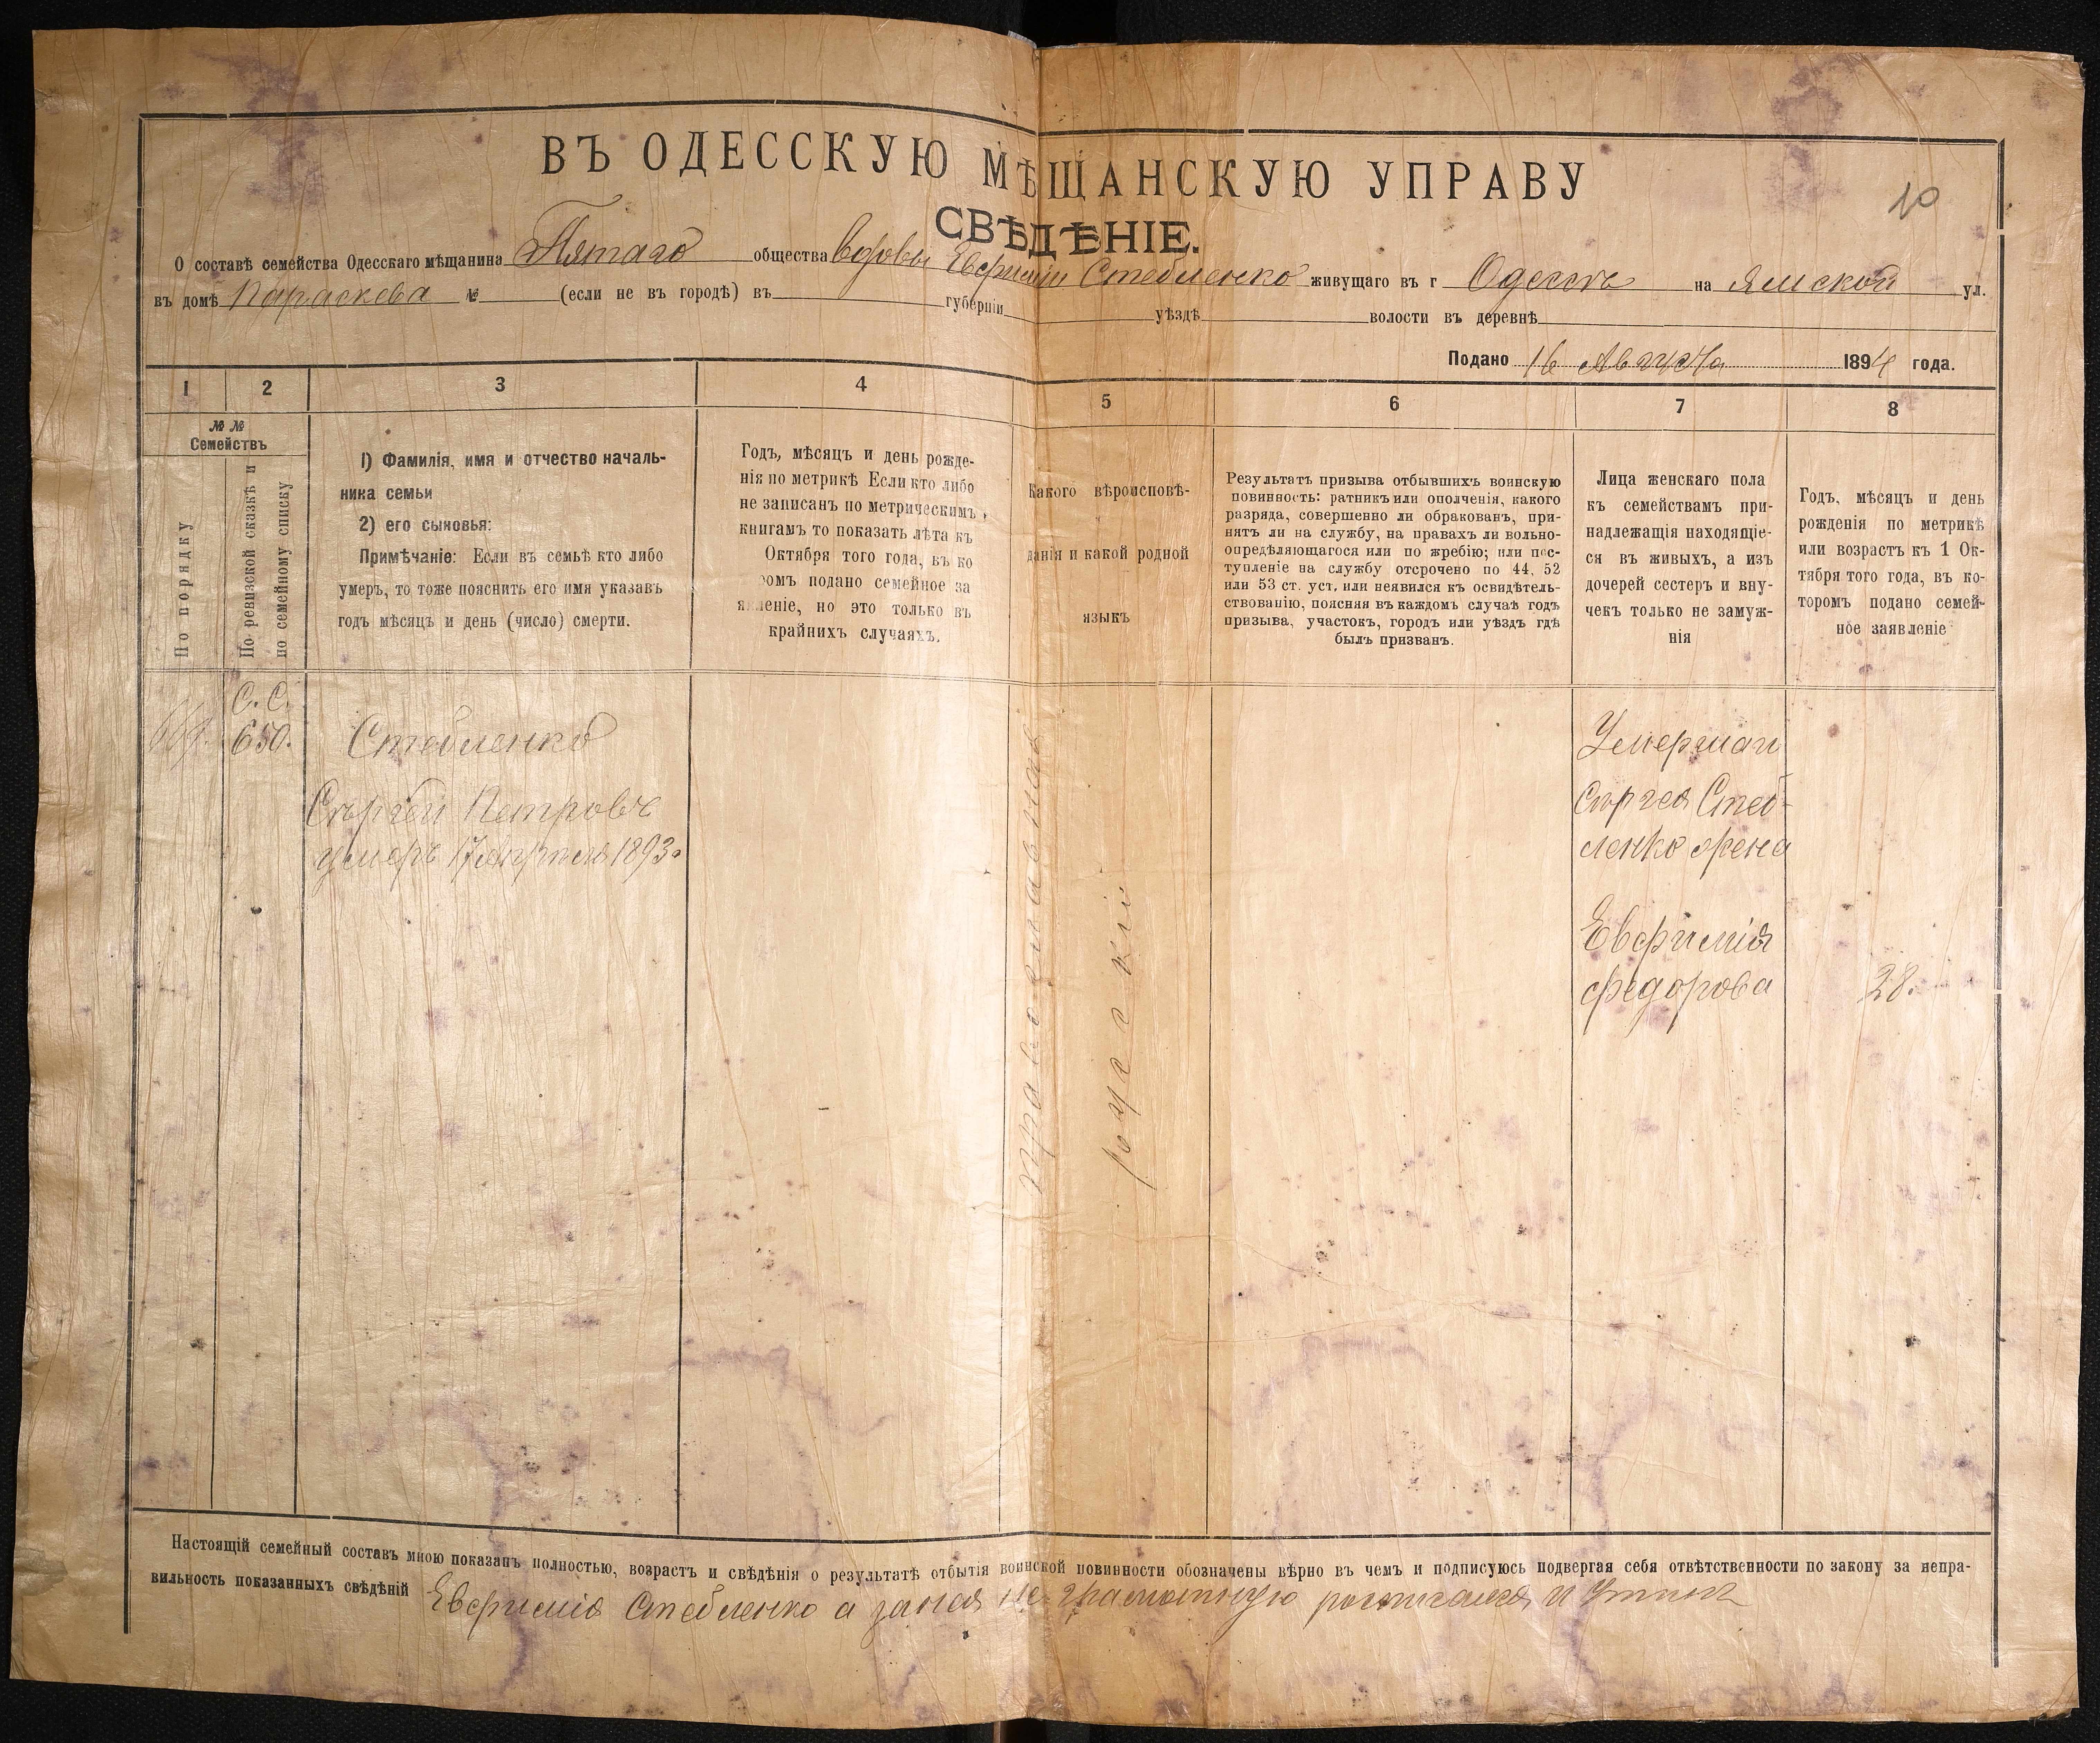 10
ВЪ ОДЕССКУЮ МѢЩАНСКУЮ УПРАВУ
СВѢДѢНІЕ.
О составѣ семейства Одесскаго мѣщанина Пятаго общества вдовы Евфиміи Стебленко живущаго въ г Одессѣ на Ямской ул.
въ домѣ Параскева № (если не въ городѣ) въ губерніи уѣздѣ волости въ деревнѣ
Подано 16 Августа 1894 года.
1 2 3 4 5 6 7 8
№ №
Семействъ
По порядку
По ревизской сказкѣ и
по семейному списку
1) Фамилія, имя и отчество началь-
ника семьи
2) его сыновья:
Примѣчаніе: Если въ семьѣ кто либо
умеръ, то тоже пояснить его имя указавъ
годъ мѣсяцъ и день (число) смерти.
Годъ, мѣсяцъ и день рожде-
нія по метрикѣ Если кто либо
не записанъ по метрическимъ
книгамъ то показать лѣта къ
Октября того года, въ ко
ромъ подано семейное за
явленіе, но это только въ
крайнихъ случаяхъ.
Какого вѣроисповѣ-
данія и какой родной
языкъ
Результатъ призыва отбывшихъ воинскую
повинность: ратникъ или ополченія, какого
разряда, совершенно ли обракованъ, при-
нятъ ли на службу, на правахъ ли вольно-
опредѣляющагося или по жребію; или пос-
тупленіе на службу отсрочено по 44, 52
или 53 ст. уст, или неявился къ освидѣтель-
ствованію, поясняя въ каждомъ случаѣ годъ
призыва, участокъ, городъ или уѣздъ гдѣ
былъ призванъ.
Лица женскаго пола
къ семействамъ при-
надлежащія находящіе-
ся въ живыхъ, а изъ
дочерей сестеръ и вну-
чекъ только не замуж-
нія
Годъ, мѣсяцъ и день
рожденія по метрикѣ
или возрастъ къ 1 Ок-
тября того года, въ ко-
торомъ подано семей-
ное заявленіе
С. С.
650.
Стебленко
Сѣргѣй Петровъ
умеръ 17 апрѣля 1893.
православная
русскій
Умершаги
Сѣргея Стеб-
ленко жена
Евфимія
Федорова
28.
Настоящій семейный составъ мною показанъ полностью, возрастъ и свѣдѣнія о результатѣ отбытія воинской повинности обозначены вѣрно въ чемъ и подписуюсь подвергая себя отвѣтственности по закону за непра-
вильность показанныхъ свѣдѣній Евфимія Стебленко а за нея не грамотную росписался